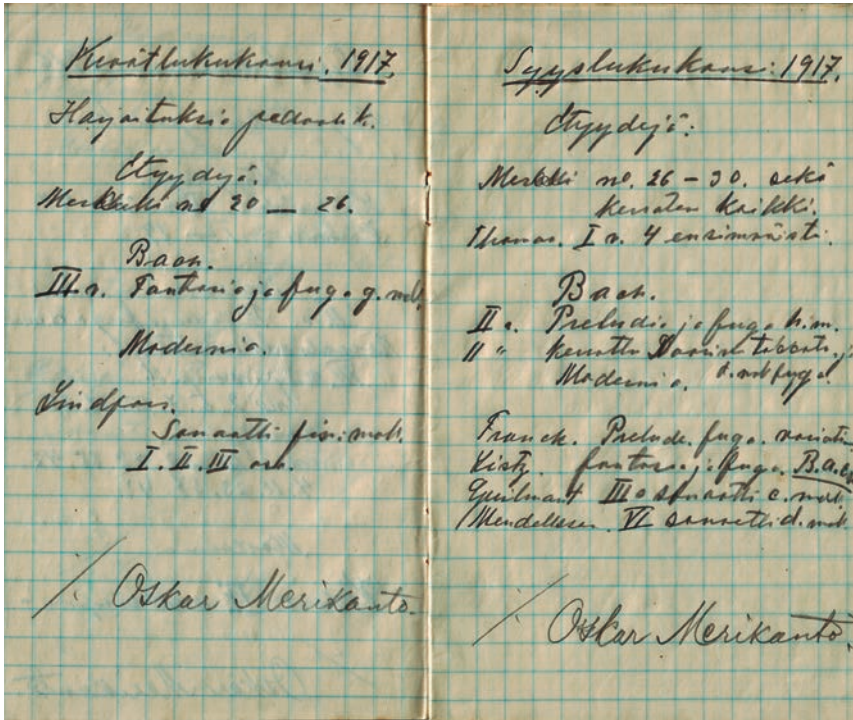 Kevätlukukausi. 1917.
Harjoituksia pedaalik.
Etyydejä.
Merkkeli no 20 — 26.
Bach.
III v. Fantasia ja fuga g. moll
Modernia.
Lindpan.
Sonaatti moll.
I. II. III os.
/. Oskar Merikanto.
Syyslukukausi. 1917.
Etyydejä:
Merkkeli no. 26 – 30. sekä
kerraten kaikki.
Thomas. I v. 4 ensimmäistä.
Bach.
II v. Preludio ja fuga h.m.
II " kerrattu Doorinen toccata. ja
Modernia. d. moll fuga.
Franck. Prelude. fuga. variatio
Liszt. fantasia ja fuga. B.a.c.h
Guilmant III sonaatti c. moll
Mendelssohn. VI sonaatti d. moll
/. Oskar Merikanto.